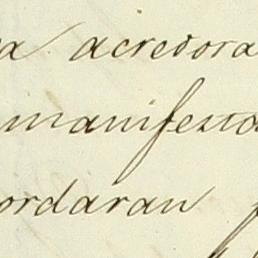 a acredora
manifesta
ordaran